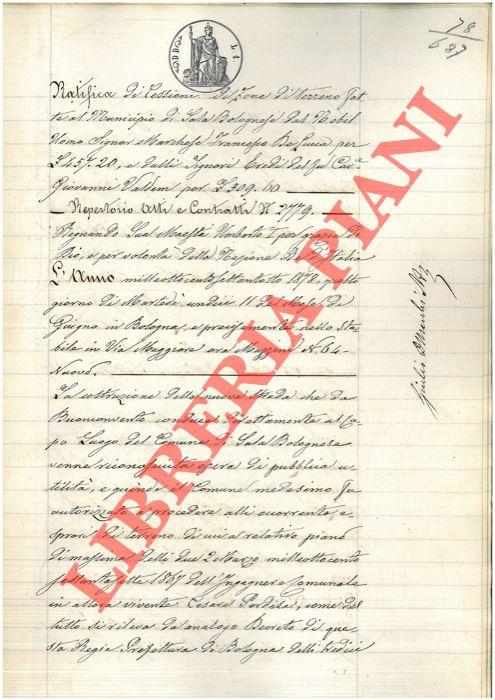 78
687
Ratifica di Cessioni di zone di terreno fat-
te al Municipio di Sala Bolognese dal Nobil
Uomo Signor Marchese Francesco De Luca per
£457.20, e dalli Signori Eredi del fu Cav.e
Giovanni Valdem per £309.60
Repertorio Atti e Contratti N° 2779.
Regnando Sua Maestà Umberto I per grazia di
Dio, e per volontà della Nazione Re d'Italia
L'Anno milleottocentosettantotto 1878, questo
giorno di Martedì undici 11 del Mese di
Giugno in Bologna, e precisamente nello sta-
bile in Via Maggiore ora Mazzini N. 64
Nuovo.
La costruzione della nuova strada che da
Buonconvento conduce direttamente al Ca-
po Luogo del Comune di Sala Bolognese
venne riconosciuta opera di pubblica u-
tilità, e quindi il Comune medesimo fu
autorizzato a procedere alli occorrenti e-
spropri di terreno di cui al relativo piano
di massima delli due 2 Marzo milleottocento
sessantasette 1867 dell'Ingegnere Comunale
in allora vivente Cesare Perdisa, come dal
tutto si rileva da analogo Decreto di que-
sta Regia Prefettura di Bologna delli tredici
Giulio
LIBRERIA PIANI